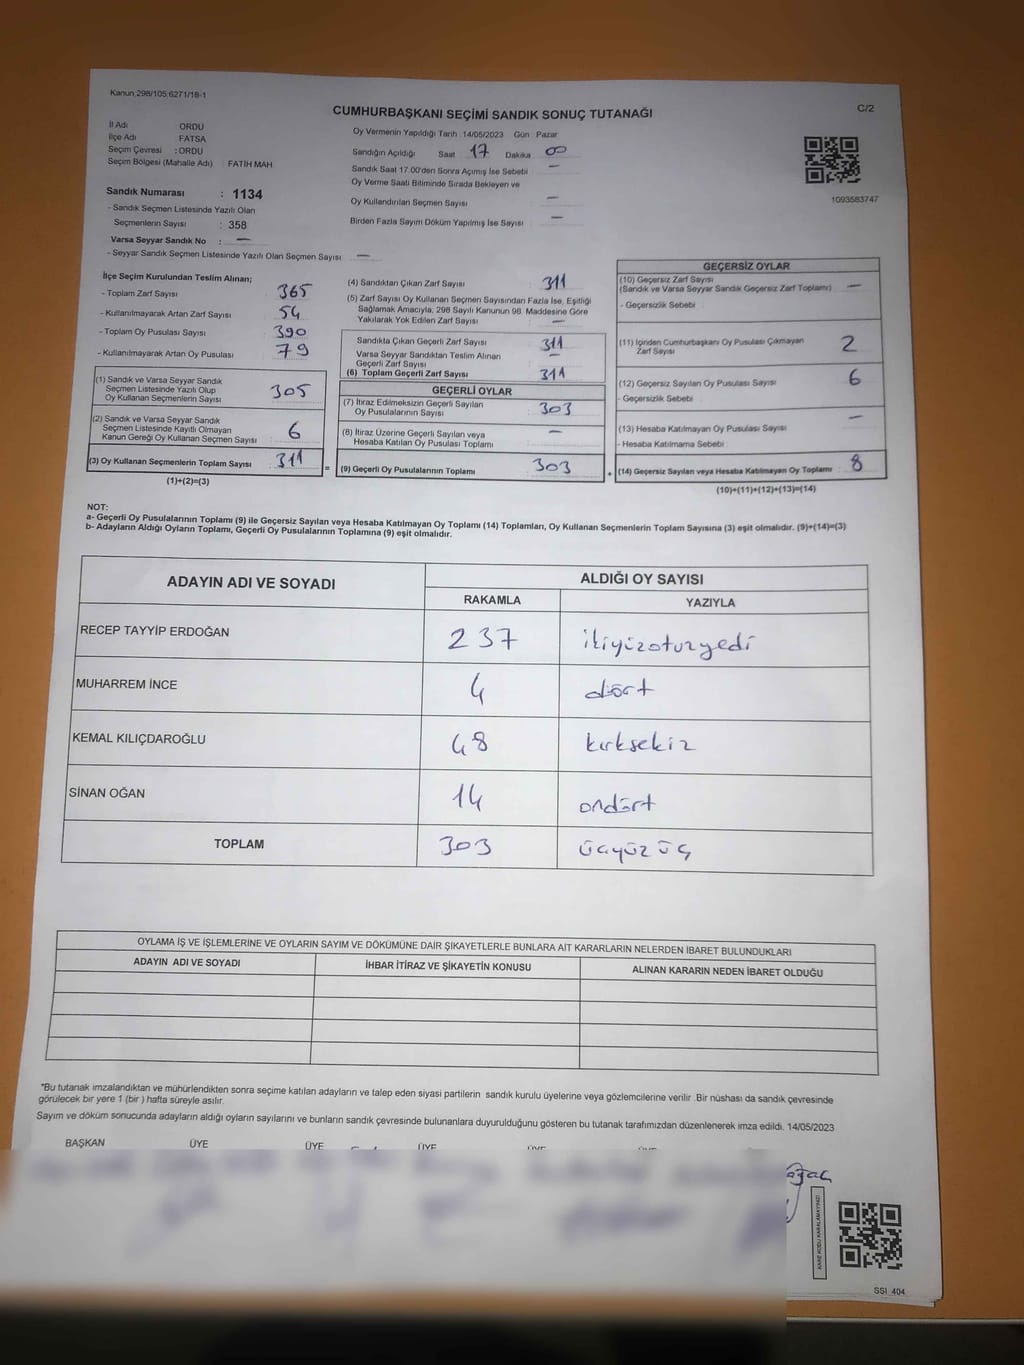 Kanun 298/105;6271/18-1
C/2
CUMHURBAŞKANI SEÇİMİ SANDIK SONUÇ TUTANAĞI
İl Adı ORDU
İlçe Adı FATSA
Seçim Çevresi : ORDU
Seçim Bölgesi (Mahalle Adı) FATİH MAH
Sandık Numarası : 1134
- Sandık Seçmen Listesinde Yazılı Olan
Seçmenlerin Sayısı : 358
Varsa Seyyar Sandık No : —
- Seyyar Sandık Seçmen Listesinde Yazılı Olan Seçmen Sayısı : —
Oy Vermenin Yapıldığı Tarih :14/05/2023 Gün : Pazar
Sandığın Açıldığı Saat 17 Dakika : 00
Sandık Saat 17.00'den Sonra Açımış İse Sebebi : —
Oy Verme Saati Bitiminde Sırada Bekleyen ve
Oy Kullandırılan Seçmen Sayısı —
Birden Fazla Sayım Döküm Yapılmış İse Sayısı : —
1093583747
İlçe Seçim Kurulundan Teslim Alınan;
- Toplam Zarf Sayısı 365
- Kullanılmayarak Artan Zarf Sayısı 54
- Toplam Oy Pusulası Sayısı 390
- Kullanılmayarak Artan Oy Pusulası 79
(1) Sandık ve Varsa Seyyar Sandık
Seçmen Listesinde Yazılı Olup
Oy Kullanan Seçmenlerin Sayısı 305
(2) Sandık ve Varsa Seyyar Sandık
Seçmen Listesinde Kayıtlı Olmayan
Kanun Gereği Oy Kullanan Seçmen Sayısı 6
(3) Oy Kullanan Seçmenlerin Toplam Sayısı 311
(1)+(2)=(3)
(4) Sandıktan Çıkan Zarf Sayısı : 311
(5) Zarf Sayısı Oy Kullanan Seçmen Sayısından Fazla İse, Eşitliği
Sağlamak Amacıyla; 298 Sayılı Kanunun 98. Maddesine Göre
Yakılarak Yok Edilen Zarf Sayısı : —
Sandıkta Çıkan Geçerli Zarf Sayısı 311
Varsa Seyyar Sandıktan Teslim Alınan
Geçerli Zarf Sayısı —
(6) Toplam Geçerli Zarf Sayısı 311
GEÇERLİ OYLAR
(7) İtiraz Edilmeksizin Geçerli Sayılan
Oy Pusulalarının Sayısı : 303
(8) İtiraz Üzerine Geçerli Sayılan veya
Hesaba Katılan Oy Pusulası Toplamı —
= (9) Geçerli Oy Pusulalarının Toplamı 303 +
GEÇERSİZ OYLAR
(10) Geçersiz Zarf Sayısı
(Sandık ve Varsa Seyyar Sandık Geçersiz Zarf Toplamı) : —
- Geçersizlik Sebebi :
(11) İçinden Cumhurbaşkanı Oy Pusulası Çıkmayan
Zarf Sayısı 2
(12) Geçersiz Sayılan Oy Pusulası Sayısı : 6
- Geçersizlik Sebebi
(13) Hesaba Katılmayan Oy Pusulası Sayısı : —
- Hesaba Katılmama Sebebi :
(14) Geçersiz Sayılan veya Hesaba Katılmayan Oy Toplamı : 8
(10)+(11)+(12)+(13)=(14)
NOT:
a- Geçerli Oy Pusulalarının Toplamı (9) ile Geçersiz Sayılan veya Hesaba Katılmayan Oy Toplamı (14) Toplamları, Oy Kullanan Seçmenlerin Toplam Sayısına (3) eşit olmalıdır. (9)+(14)=(3)
b- Adayların Aldığı Oyların Toplamı, Geçerli Oy Pusulalarının Toplamına (9) eşit olmalıdır.
ADAYIN ADI VE SOYADI ALDIĞI OY SAYISI
RAKAMLA YAZIYLA
RECEP TAYYİP ERDOĞAN 237 ikiyüzotuzyedi
MUHARREM İNCE 4 dört
KEMAL KILIÇDAROĞLU 48 kırksekiz
SİNAN OĞAN 14 ondört
TOPLAM 303 üçyüzüç
OYLAMA İŞ VE İŞLEMLERİNE VE OYLARIN SAYIM VE DÖKÜMÜNE DAİR ŞİKAYETLERLE BUNLARA AİT KARARLARIN NELERDEN İBARET BULUNDUKLARI
ADAYIN ADI VE SOYADI İHBAR İTİRAZ VE ŞİKAYETİN KONUSU ALINAN KARARIN NEDEN İBARET OLDUĞU
*Bu tutanak imzalandıktan ve mühürlendikten sonra seçime katılan adayların ve talep eden siyasi partilerin sandık kurulu üyelerine veya gözlemcilerine verilir .Bir nüshası da sandık çevresinde
görülecek bir yere 1 (bir ) hafta süreyle asılır.
Sayım ve döküm sonucunda adayların aldığı oyların sayılarını ve bunların sandık çevresinde bulunanlara duyurulduğunu gösteren bu tutanak tarafımızdan düzenlenerek imza edildi. 14/05/2023
BAŞKAN ÜYE ÜYE ÜYE
KARE KODU KARALAMAYINIZ!
SSI 404